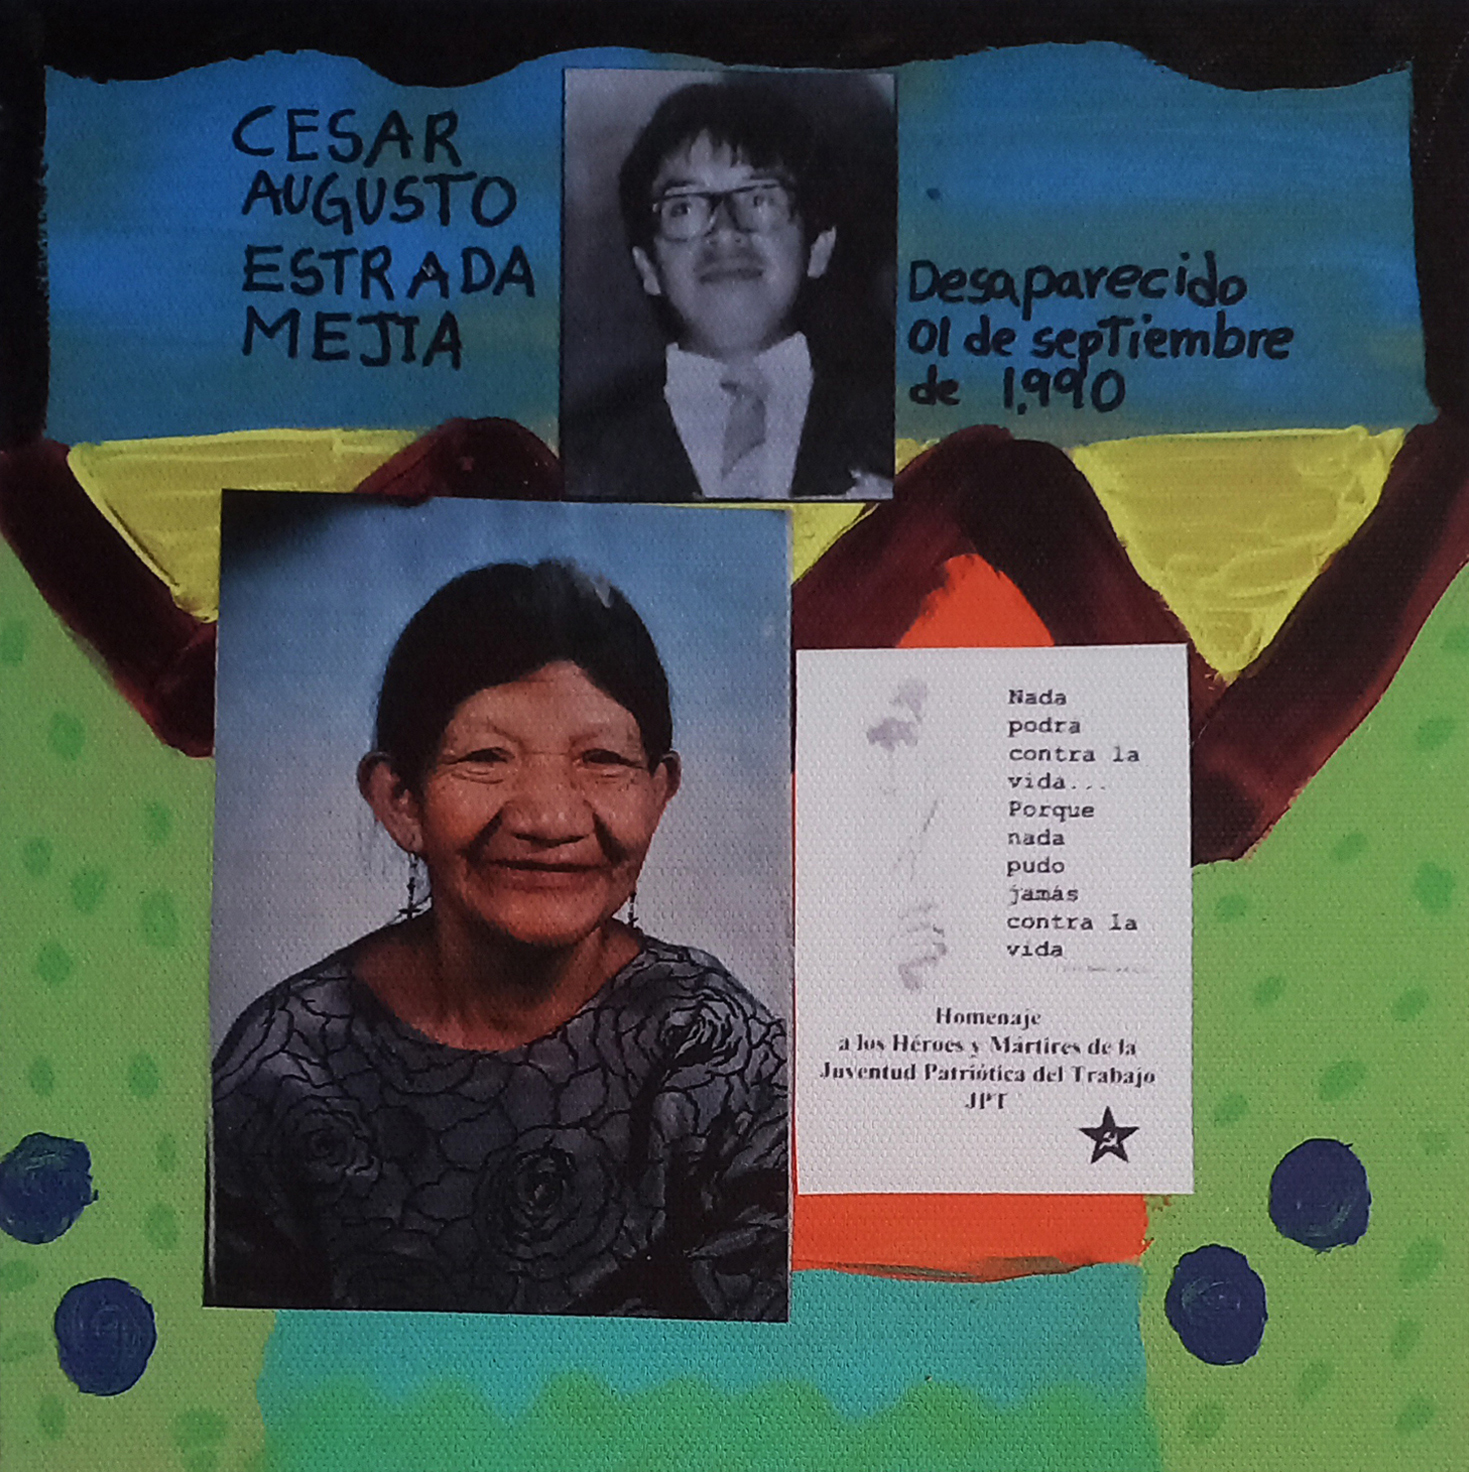 CESAR
AUGUSTO
ESTRADA
MEJIA
Desaparecido
01 de septiembre
de 1,990
Nada
podra
contra la
vida...
Porque
nada
pudo
jamás
contra la
vida
Homenaje
a los Héroes y Mártires de la
Juventud Patriótica del Trabajo
JPT